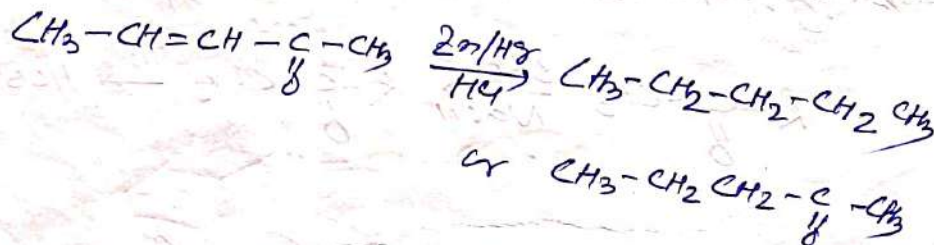 CH3-CH=CH-C-CH3 Zn/Hg CH3-CH2-CH2-CH2 CH3
O HCl
or CH3-CH2 CH2-C-CH3
O